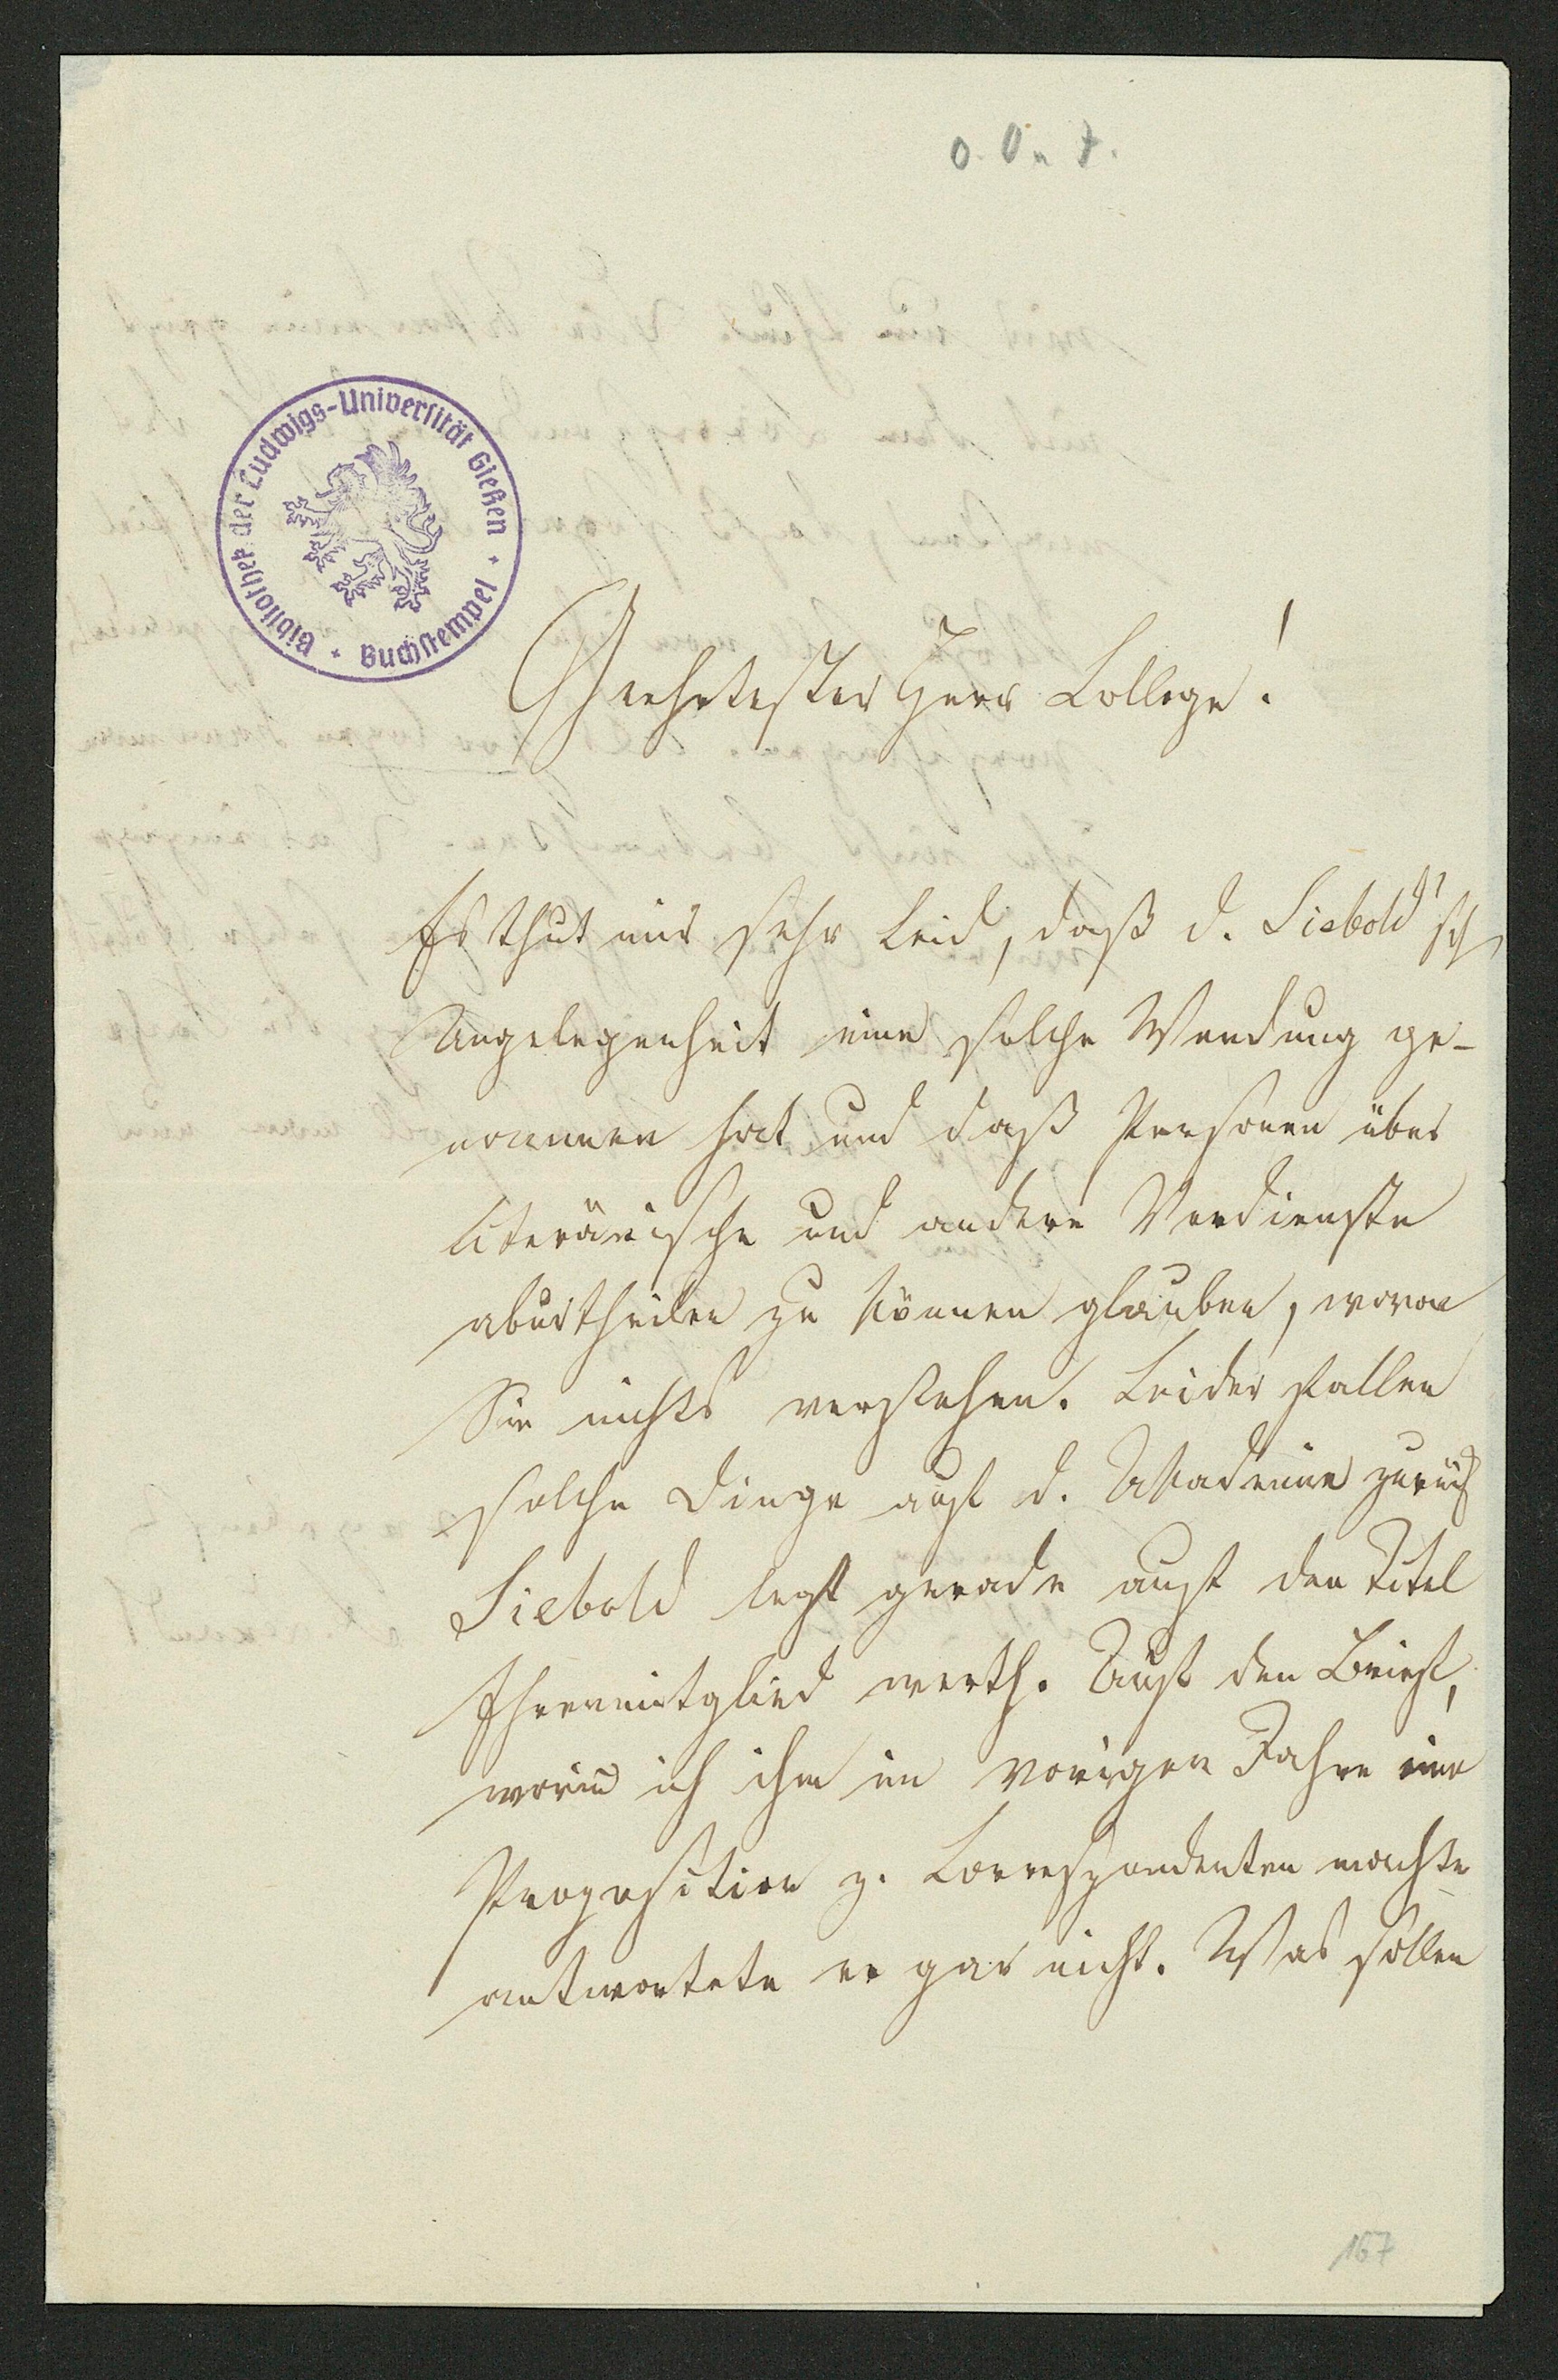 o. O. u. D.
Bibliothek der Ludwigs-Universität Gießen
* Buchstempel *
Geehrtester Herr College!
Es thut mir sehr leid, daß d. Siebold'sch
Angelegenheit eine solche Wendung ge-
nommen hat und daß Personen über
literärische und andere Verdienste
aburtheilen zu können glauben, wovon
Sie nichts verstehen. Leider fallen
solche Dinge auf d. Akademie zurück
Siebold legt gerade auf den Titel
Ehrenmitglied werth. Auf den Brief,
worin ich ihm im vorigen Jahre eine
Proposition z. Correspondenten machte
antwortete er gar nicht. Was sollen
167